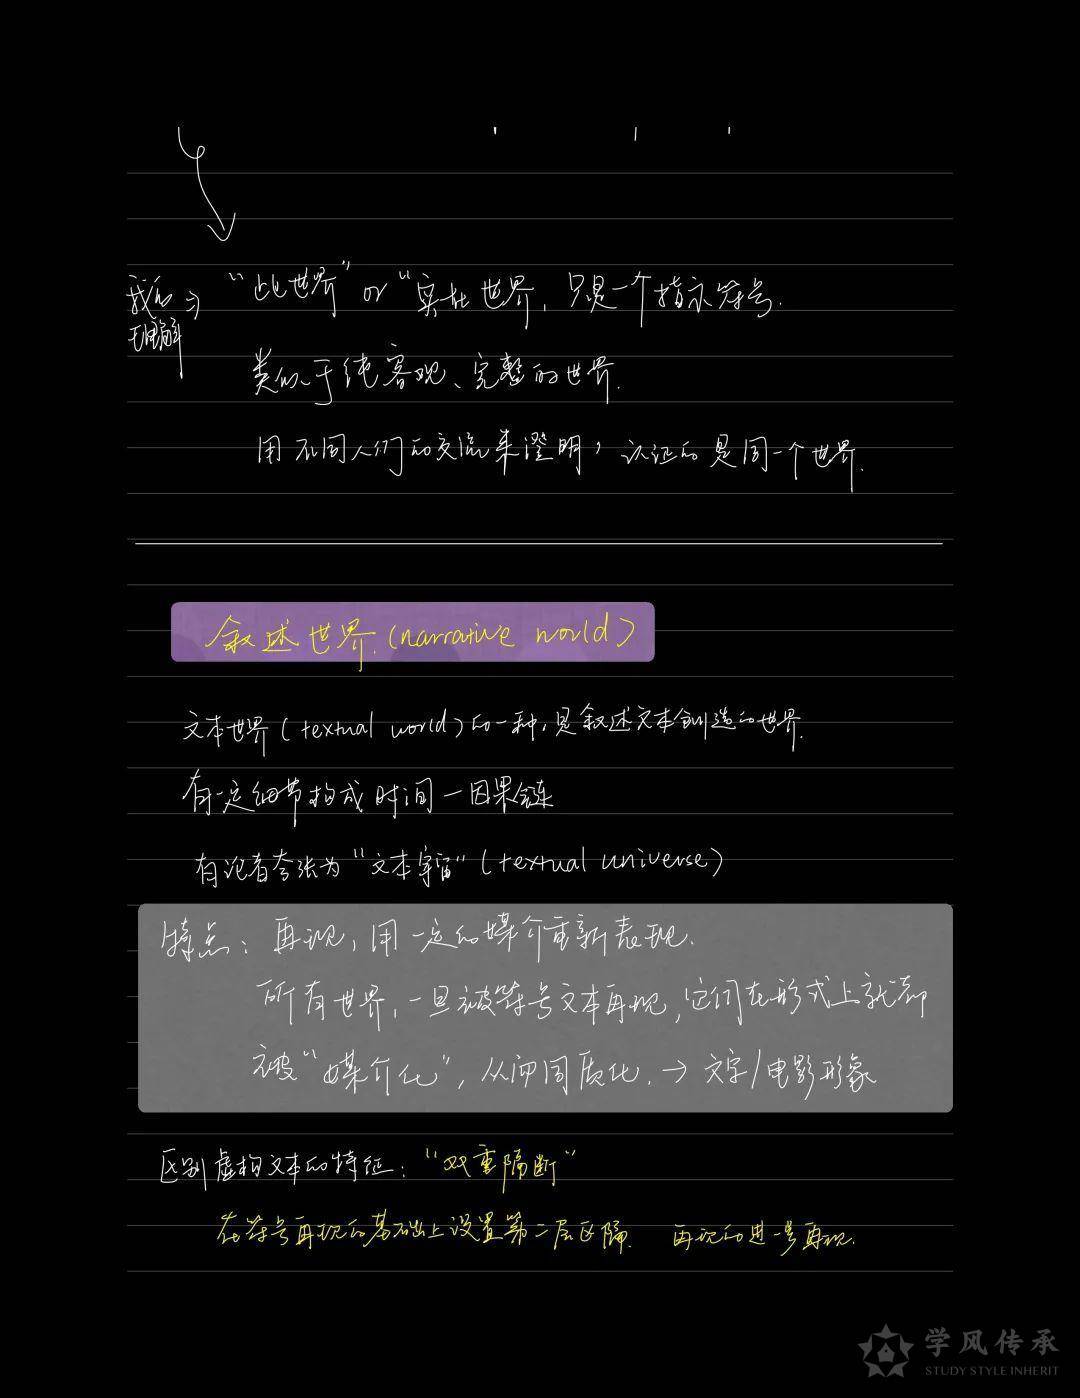 我的理解 ⇒ “此世界” or “实在世界, 只是一个指示符号.
类似于纯客观、完整的世界.
用不同人们的交流来澄明, 认证的是同一个世界.
叙述世界.(narrative world)
文本世界(textual world)的一种, 是叙述文本创造的世界.
有一定细节构成时间一因果链
有论者夸张为“文本宇宙”(textual universe)
特点: 再现, 用一定的媒介重新表现.
所有世界, 一旦被符号文本再现, 它们在形式上就都
被“媒介化”, 从而同质化. → 文字/电影形象
区别虚构文本的特征: “双重隔断”
在符号再现的基础上设置第二层区隔. 再现的进一步再现.
学风传承
STUDY STYLE INHERIT